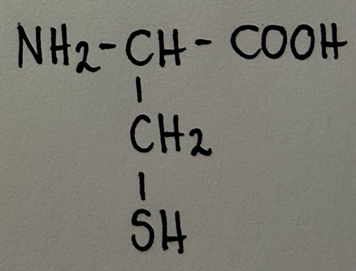 NH2-CH-COOH
|
CH2
|
SH